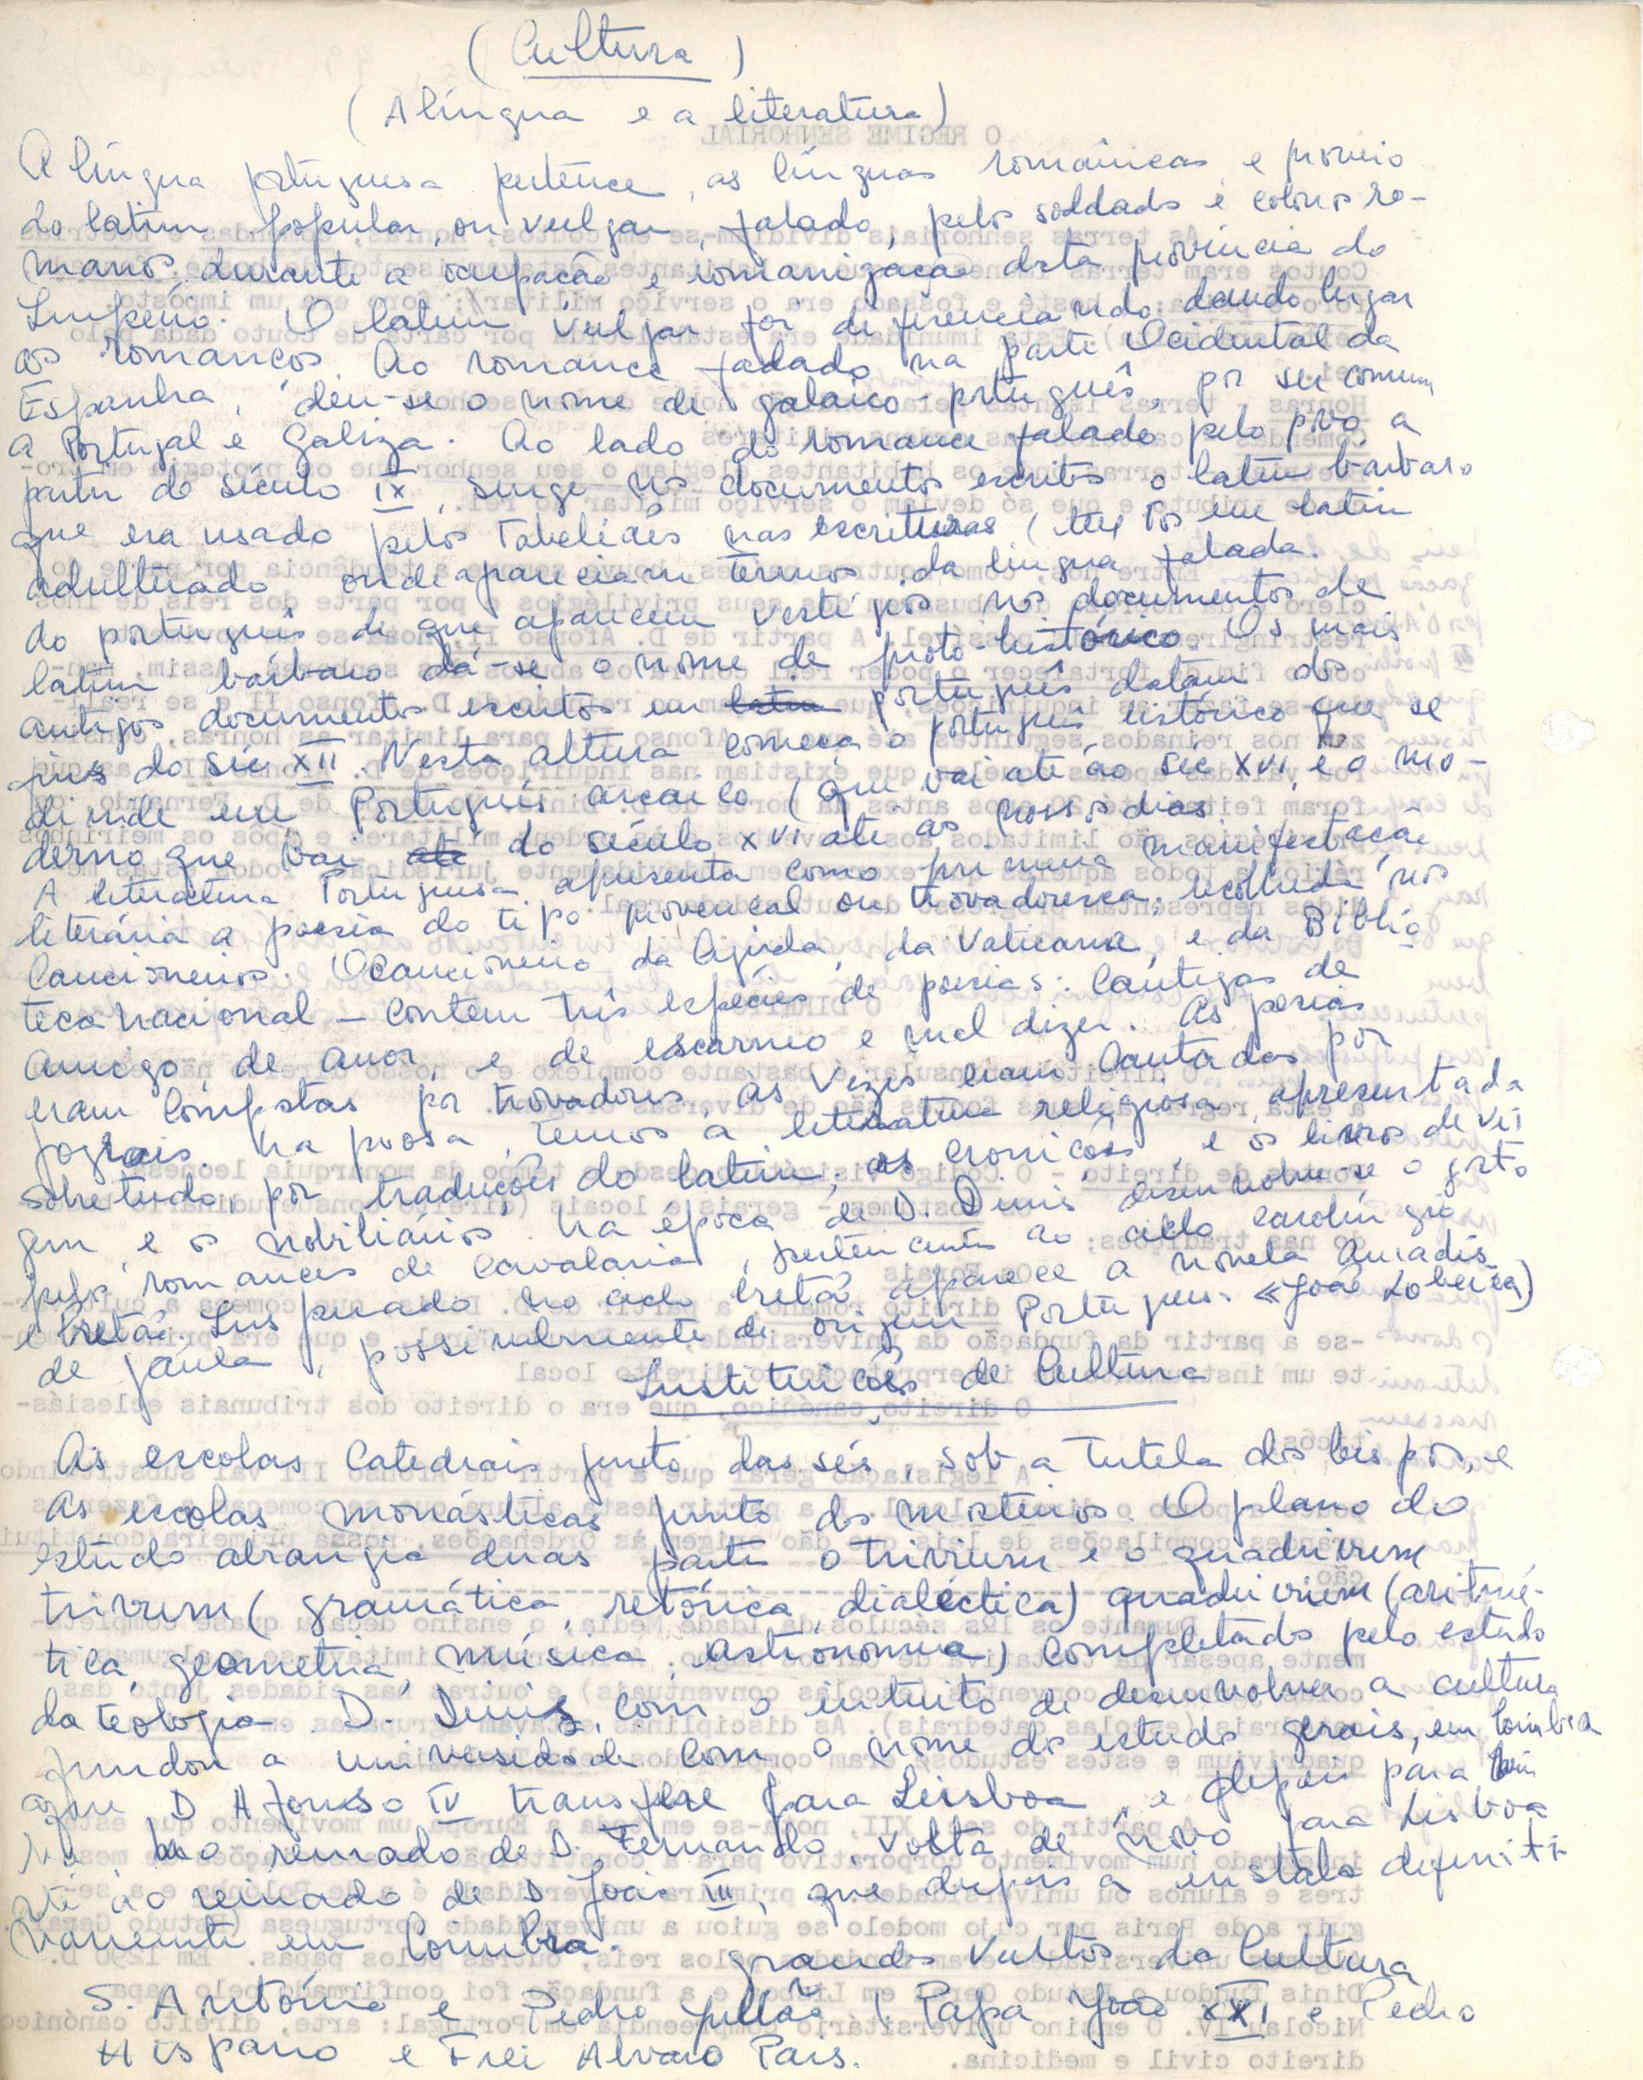 (Cultura)
(A língua e a literatura)
A língua portuguesa pertence, as línguas romanicas e proveio
do latim popular, ou vulgar, falado, pelos soldados e colonos ro-
manos durante a ocupação e romanização desta província do
Império. O latim vulgar foi diferenciando dando lugar
aos romanços. Ao romance falado na parte Ocidental da
Espanha, deu-se o nome de galaico-português, por ser comum
a Portugal e Galiza. Ao lado do romance falado pelo povo, a
partir do século IX, surge nos documentos escritos o latim barbaro
que era usado pelos Tabeliães nas escrituras, em latim
adulterado onde apareciam termos da lingua falada.
do português de que aparecem vestígios nos documentos de
latim bárbaro dá-se o nome de proto-histórico. Os mais
antigos documentos escritos em latim português datam do
fins do séc XII. Nesta altura começa o português istórico que se
divide em Português arcaico (que vai até ao séc XVI, e o mo-
derno que vai até do século XVI até aos nossos dias.
A literatura Portuguesa apresenta como primeira manifestação
literária a poesia do tipo provençal ou trovadoresca; recolhida nos
Cancioneiros. O cancioneiro da Ajuda, da Vaticana, e da Biblio
teca nacional — Contem três espécies de poesias: Cantigas de
amigo, de amor, e de escarneo e mal dizer. As poesias
eram compostas por trovadores, às vezes eram Cantadas por
jograis. Na poosa, temos a literatura religiosa apresentada
sobretudo, por traduções do latim; as cronicões, e os livros de vei
gem, e os nobiliários. Na época de D. Dinis desenvolve-se o gosto
pelos romances de Cavalaria, pertencentes ao ciclo carolíngio
e bretão. Inspirado no ciclo bretão aparece a novela Amadis
de Gaula, possivelmente de origem Portuguesa «João Lobeira)
Instituições de Cultura
As escolas Catedrais junto das sés, sob a Tutela dos bispos, e
as escolas monásticas junto dos mosteiros. O plano do
estudo abrangia duas partes o trivium e o quadrivium
trivium (gramática, retórica, dialéctica) quadrivium (aritmé-
tica, geometria, música, astronomia) Completado pelo estudo
da teologia. D. Dinis, com o intuito de desenvolver a cultura
fundou a universidade com o nome de estudo gerais, em Coimbra
que D Afonso IV transfere para Lisboa, e depois para Coim
bra, no reinado de D. Fernando, volta de novo para Lisboa
até ao reinado de D João III, que depois a instala definiti
vamente em Coimbra.
grandes Vultos da Cultura
S. António e Pedro Julião (Papa João XXI e Pedro
Hispano e Frei Alvaro Pais.